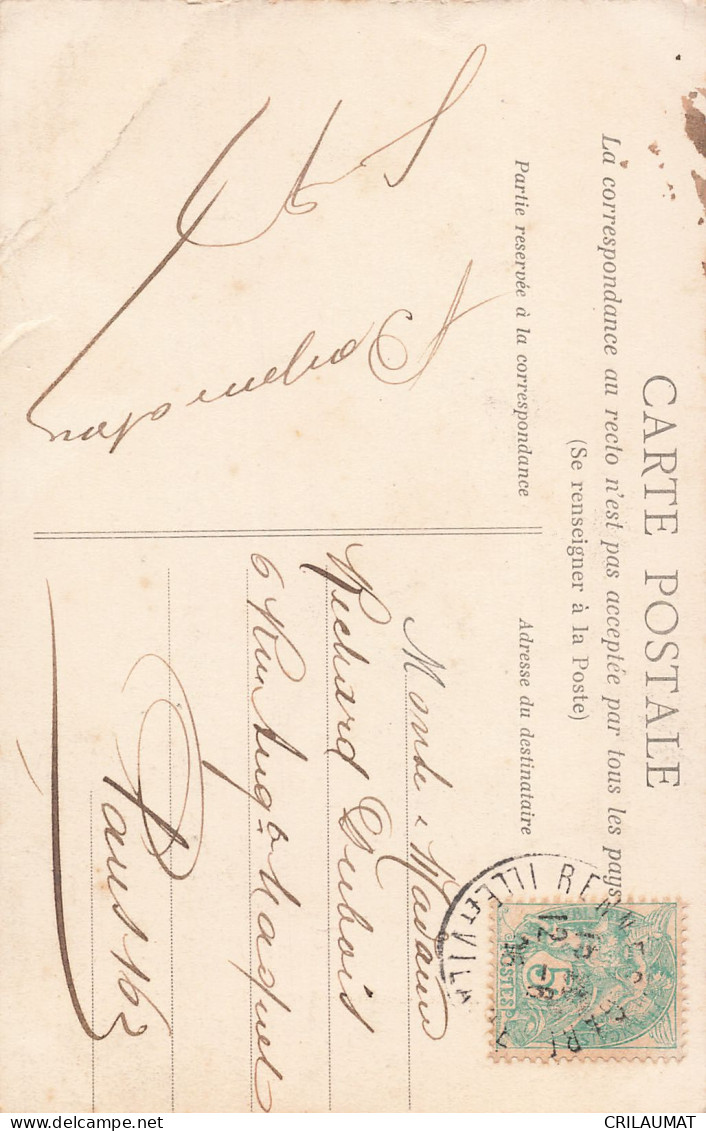 CARTE POSTALE
La correspondance au recto n'est pas acceptée par tous les pays
(Se renseigner à la Poste)
Partie reservée à la correspondance
Adresse du destinataire
Madame
Richard Dubois
6 Rue Augte Maquet
Paris 16
RENNES
ILLE ET VILAINE
5
POSTES
CRILAUMAT